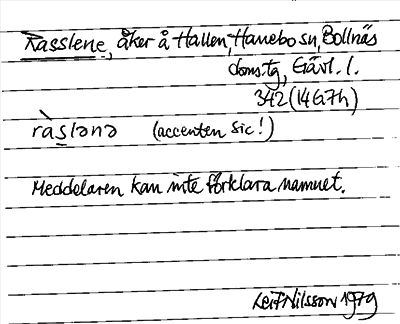 Rasslene, åker å Hallen, Hanebo sn, Bollnäs
domstg, Gävl. l.
342 (14G7h)
ràs̲lənə (accenten sic!)
Meddelaren kan inte förklara namnet.
Leif Nilsson 1979